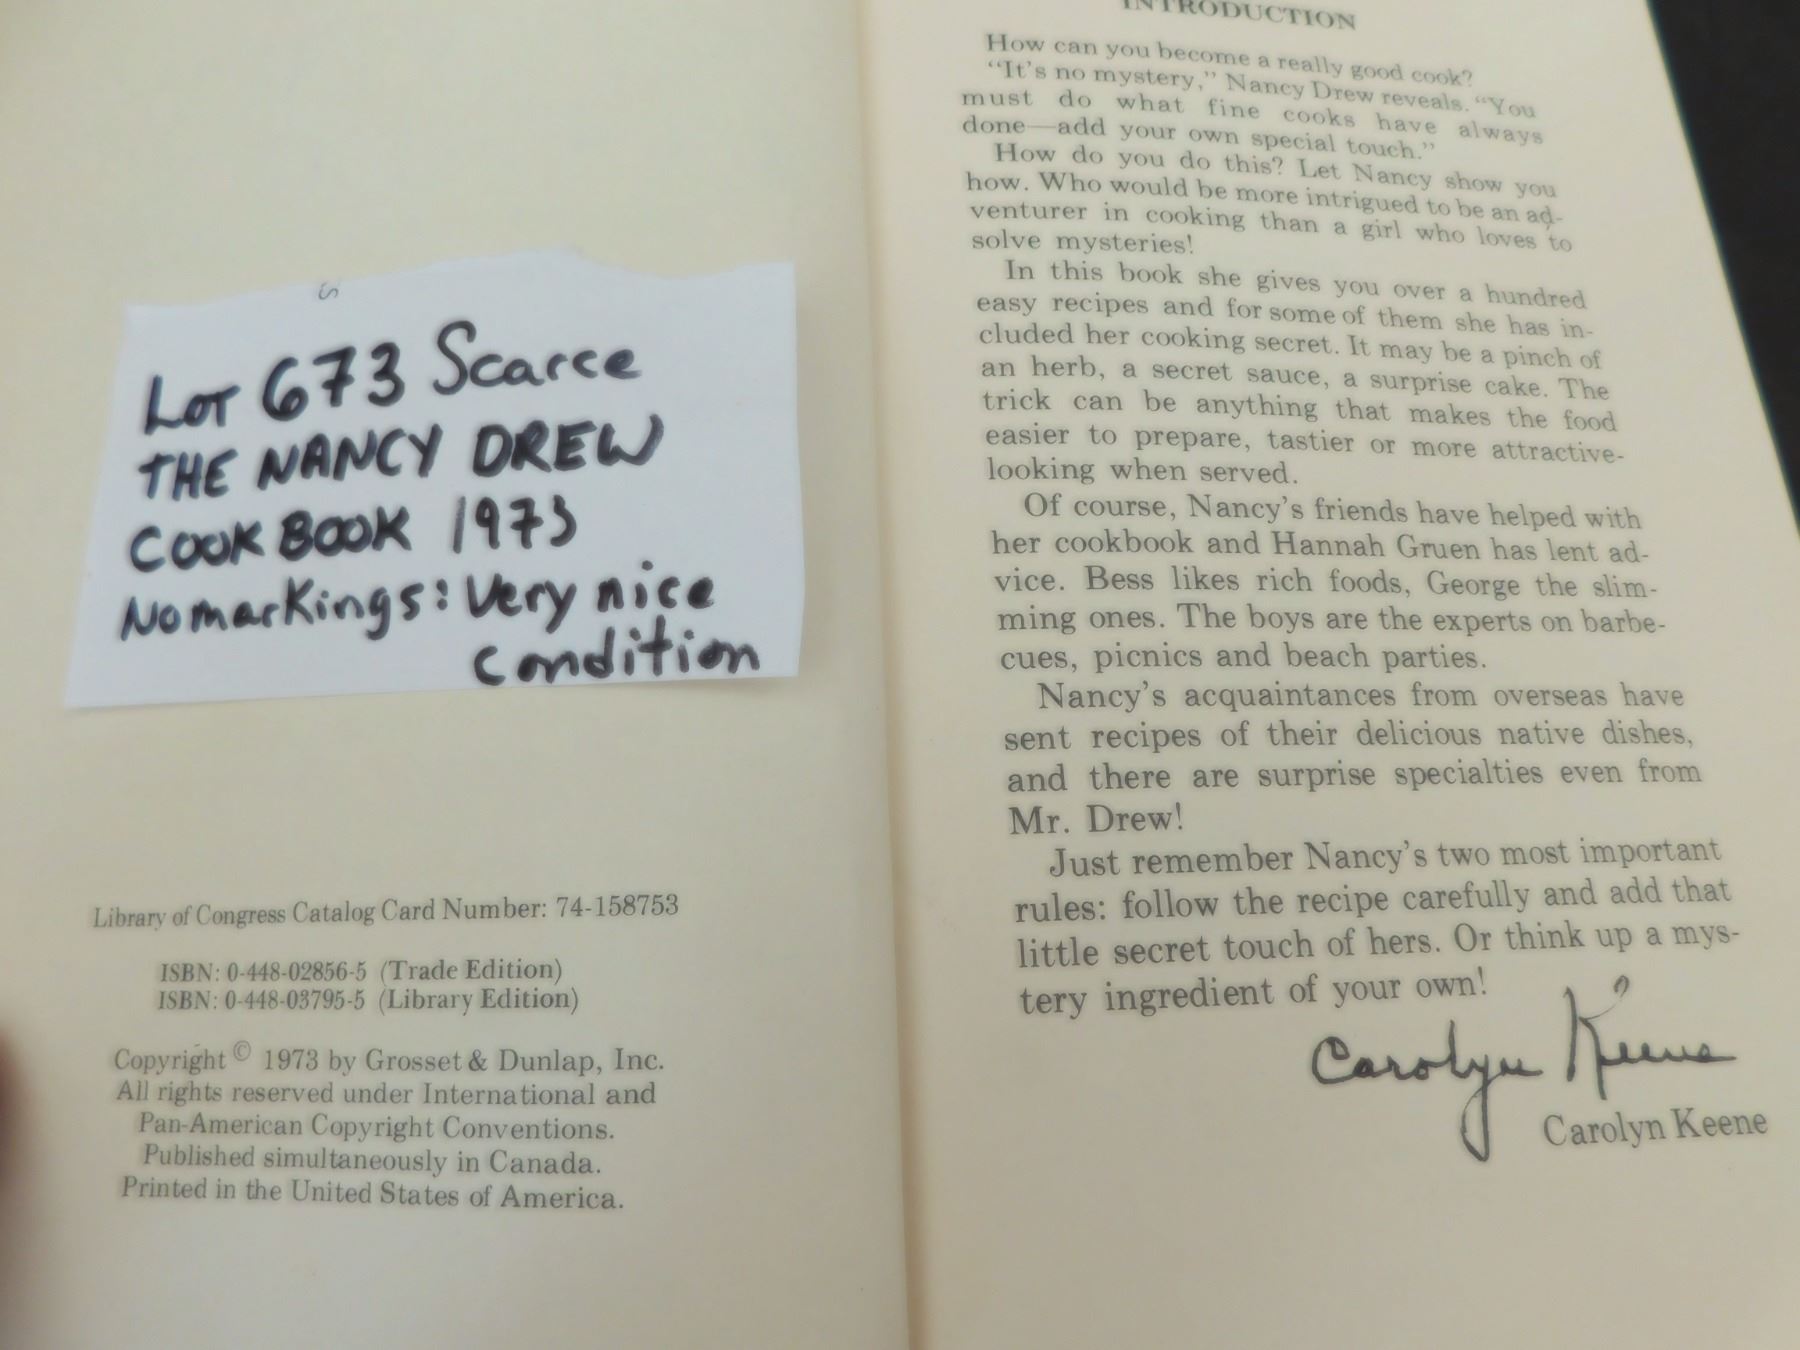 S
Lot 673 Scarce
THE NANCY DREW
COOK BOOK 1973
No markings: Very nice
condition
Library of Congress Catalog Card Number: 74-158753
ISBN: 0-448-02856-5 (Trade Edition)
ISBN: 0-448-03795-5 (Library Edition)
Copyright © 1973 by Grosset & Dunlap, Inc.
All rights reserved under International and
Pan-American Copyright Conventions.
Published simultaneously in Canada.
Printed in the United States of America.
INTRODUCTION
How can you become a really good cook?
“It's no mystery,” Nancy Drew reveals. “You
must do what fine cooks have always
done—add your own special touch.”
How do you do this? Let Nancy show you
how. Who would be more intrigued to be an ad-
venturer in cooking than a girl who loves to
solve mysteries!
In this book she gives you over a hundred
easy recipes and for some of them she has in-
cluded her cooking secret. It may be a pinch of
an herb, a secret sauce, a surprise cake. The
trick can be anything that makes the food
easier to prepare, tastier or more attractive-
looking when served.
Of course, Nancy's friends have helped with
her cookbook and Hannah Gruen has lent ad-
vice. Bess likes rich foods, George the slim-
ming ones. The boys are the experts on barbe-
cues, picnics and beach parties.
Nancy's acquaintances from overseas have
sent recipes of their delicious native dishes,
and there are surprise specialties even from
Mr. Drew!
Just remember Nancy's two most important
rules: follow the recipe carefully and add that
little secret touch of hers. Or think up a mys-
tery ingredient of your own!
Carolyn Keene
Carolyn Keene